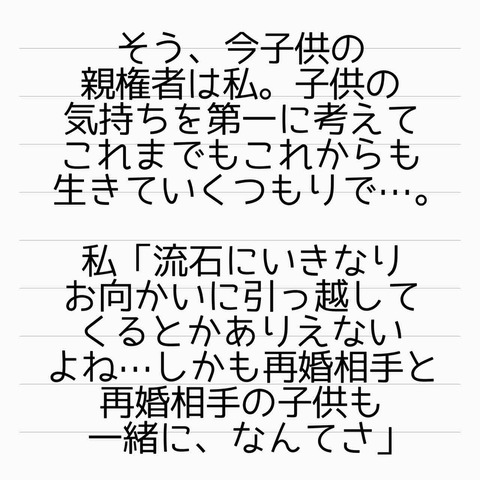 そう、今子供の
親権者は私。子供の
気持ちを第一に考えて
これまでもこれからも
生きていくつもりで…。
私「流石にいきなり
お向かいに引っ越して
くるとかありえない
よね…しかも再婚相手と
再婚相手の子供も
一緒に、なんてさ」